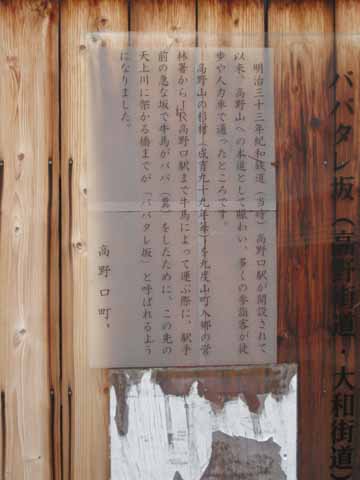 ババタレ坂(高野街道・大和街道)
明治三十三年紀和鉄道(当時)高野口駅が開設されて
以来、高野山への本道として賑わい、多くの参詣客が徒
歩や人力車で通ったところです。
高野山の杉材(成育九十九年)を九度山町入郷の営
林署からJR高野口駅まで牛馬によって運ぶ際に、駅手
前の急な坂で牛馬がババ(糞)をしたために、この先の
天上川に架かる橋までが「ババタレ坂」と呼ばれるよう
になりました。
高野口町